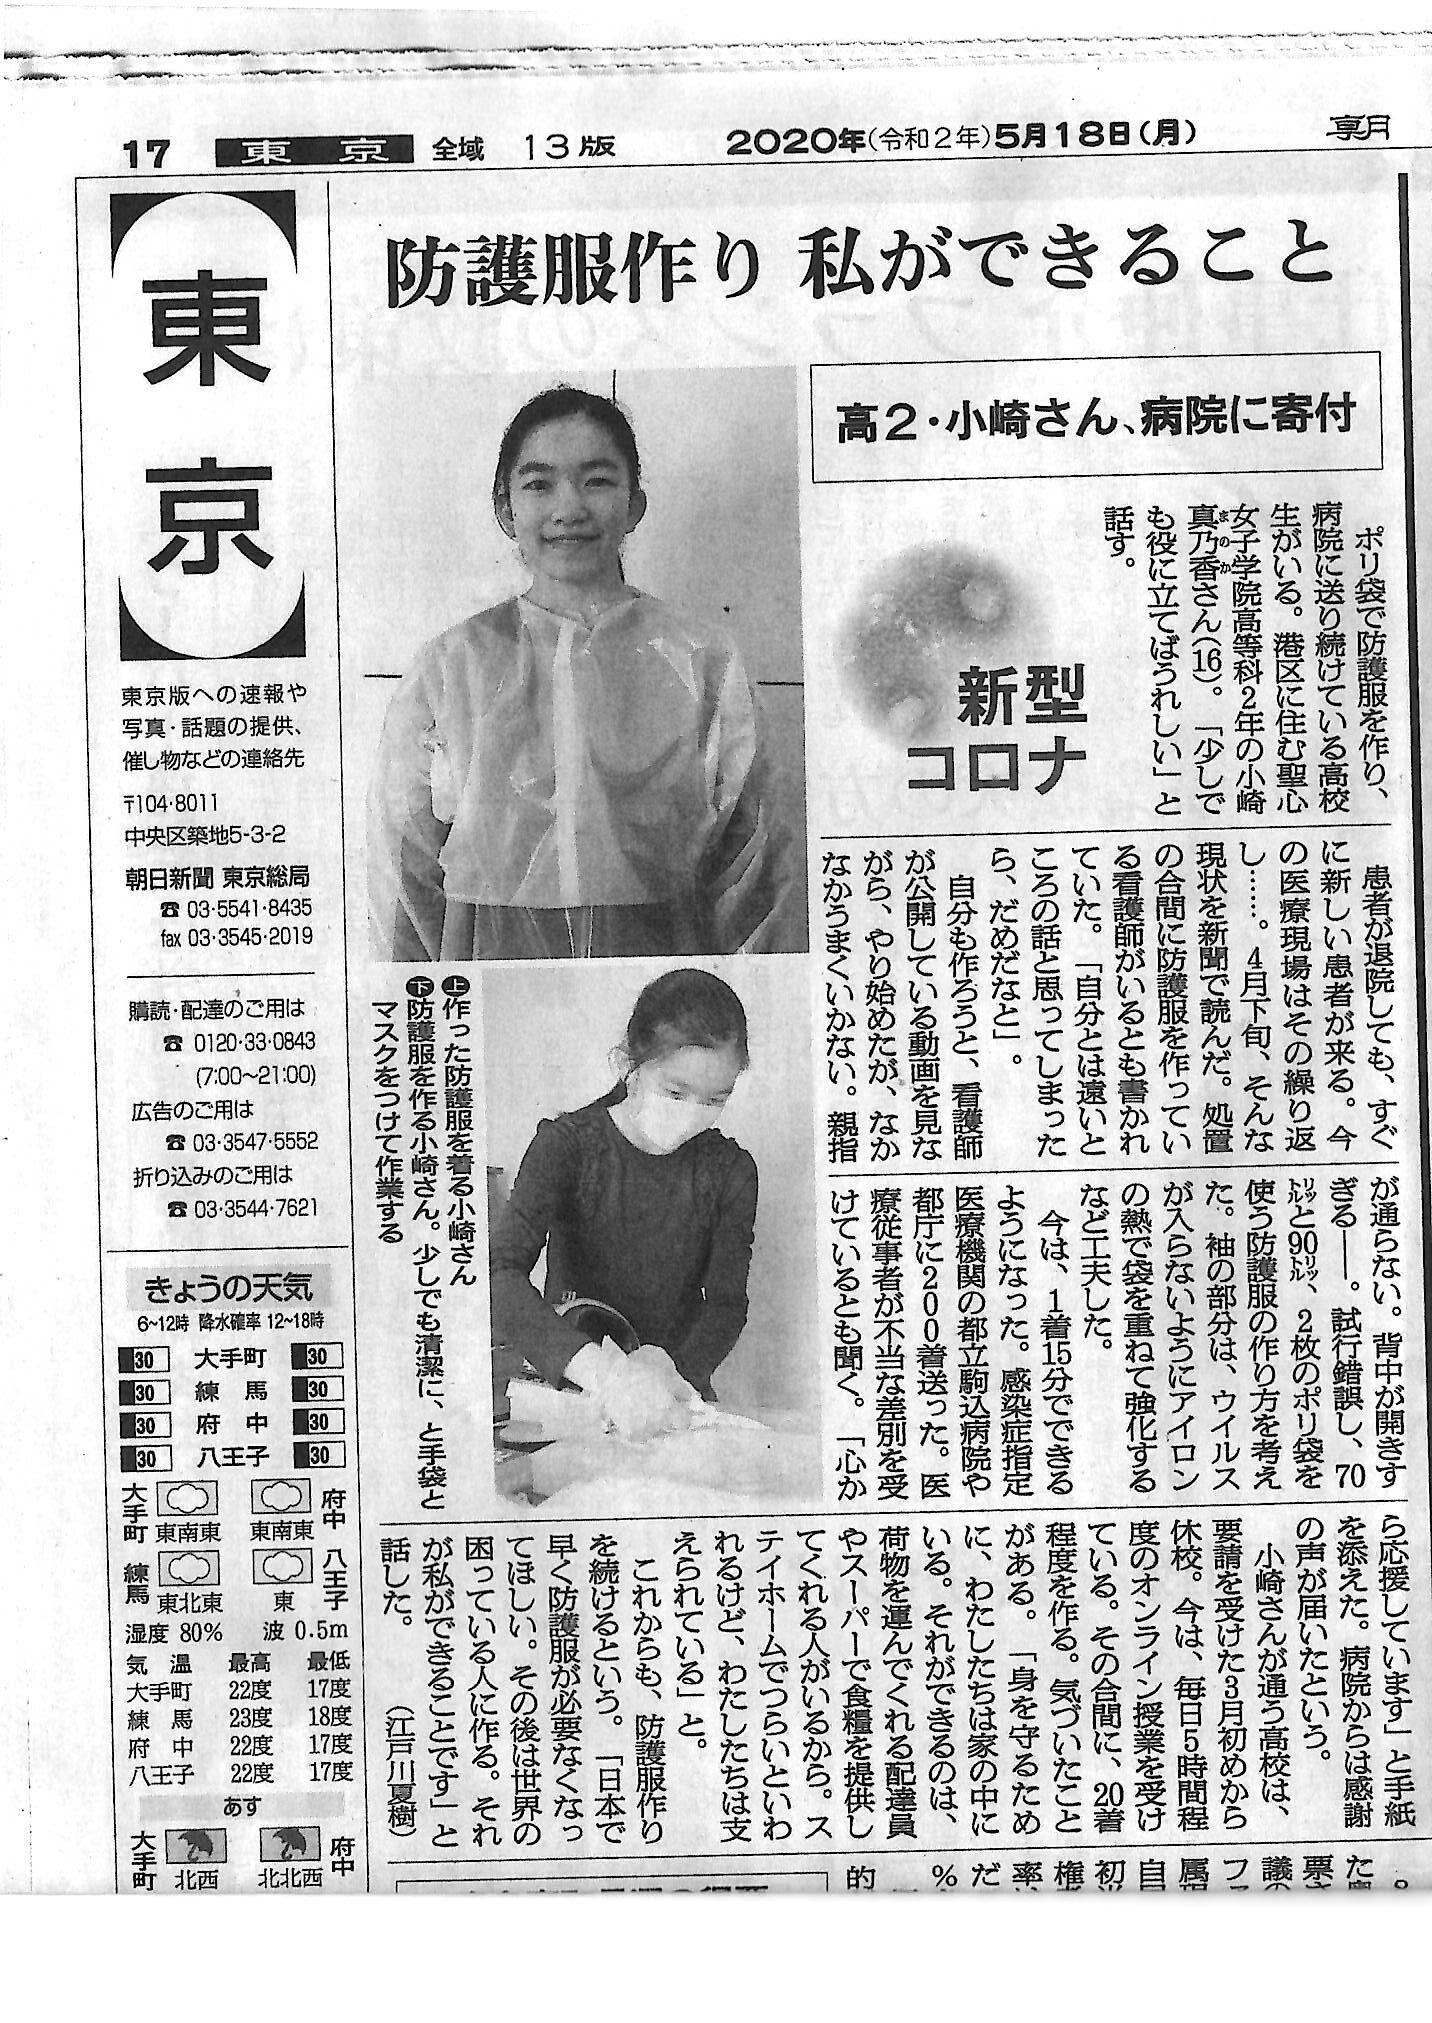 17 東京 全域 13版 2020年(令和2年)5月18日(月) 朝
東京
東京版への速報や
写真・話題の提供、
催し物などの連絡先
〒104・8011
中央区築地5-3-2
朝日新聞 東京総局
☎ 03・5541・8435
fax 03・3545・2019
購読・配達のご用は
☎ 0120・33・0843
(7:00〜21:00)
広告のご用は
☎ 03・3547・5552
折り込みのご用は
☎ 03・3544・7621
きょうの天気
6〜12時 降水確率 12〜18時
30 大手町 30
30 練馬 30
30 府中 30
30 八王子 30
大手町 東南東 東南東 府中
練馬 東北東 東 八王子
湿度 80% 波 0.5m
気温 最高 最低
大手町 22度 17度
練馬 23度 18度
府中 22度 17度
八王子 22度 17度
あす
大手町 北西 北北西 府中
防護服作り 私ができること
高2・小崎さん、病院に寄付
新型
コロナ
ポリ袋で防護服を作り、
病院に送り続けている高校
生がいる。港区に住む聖心
女子学院高等科2年の小崎
真乃香さん(16)。「少しで
まのか
も役に立てばうれしい」と
話す。
患者が退院しても、すぐ
に新しい患者が来る。今
の医療現場はその繰り返
し……。4月下旬、そんな
現状を新聞で読んだ。処置
の合間に防護服を作ってい
る看護師がいるとも書かれ
ていた。「自分とは遠いと
ころの話と思ってしまった
ら、だめだなと」。
自分も作ろうと、看護師
が公開している動画を見な
がら、やり始めたが、なか
なかうまくいかない。親指
が通らない。背中が開きす
ぎる――。試行錯誤し、70
リットルと90リットル、2枚のポリ袋を
使う防護服の作り方を考え
た。袖の部分は、ウイルス
が入らないようにアイロン
の熱で袋を重ねて強化する
など工夫した。
今は、1着15分でできる
ようになった。感染症指定
医療機関の都立駒込病院や
都庁に200着送った。医
療従事者が不当な差別を受
けているとも聞く。「心か
ら応援しています」と手紙
を添えた。病院からは感謝
の声が届いたという。
小崎さんが通う高校は、
要請を受けた3月初めから
休校。今は、毎日5時間程
度のオンライン授業を受け
ている。その合間に、20着
程度を作る。気づいたこと
がある。「身を守るため
に、わたしたちは家の中に
いる。それができるのは、
荷物を運んでくれる配達員
やスーパーで食糧を提供し
てくれる人がいるから。ス
テイホームでつらいといわ
れるけど、わたしたちは支
えられている」と。
これからも、防護服作り
を続けるという。「日本で
早く防護服が必要なくなっ
てほしい。その後は世界の
困っている人に作る。それ
が私ができることです」と
話した。
(江戸川夏樹)
㊤作った防護服を着る小崎さん
㊦防護服を作る小崎さん。少しでも清潔に、と手袋と
マスクをつけて作業する